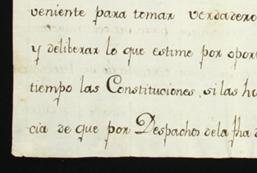 veniente para tomar verdadero
y deliberar lo que estime por opor
tiempo las Constituciones, si las hu
cia de que por Despacho dela fha